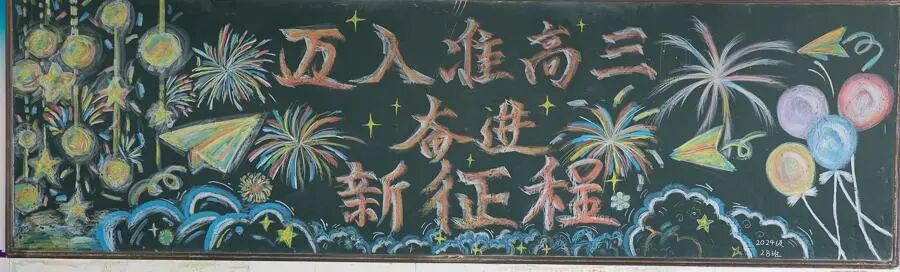 迈入准高三
奋进
新征程
2024级
28班